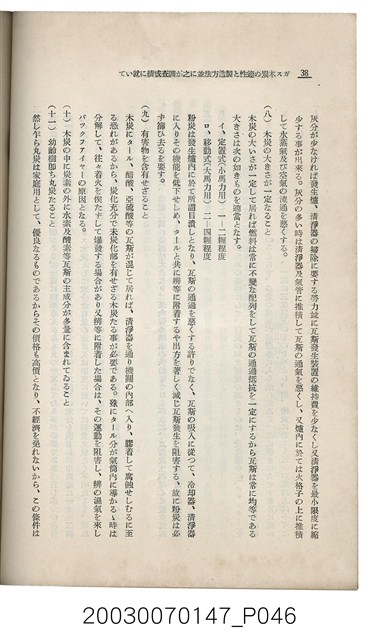 38
ガス木炭の適性と製造方法並に之が調査成績に就いて
灰分が少なければ發生爐、清淨器の掃除に要する勞力並に瓦斯發生裝置の維持費を少なくし又清淨器を最小限度に縮
少する事が出來る。灰分の多い時は清淨器及氣管に堆積して瓦斯の通氣を惡くし、又爐內に於ては火格子の上に堆積
して水蒸氣及び空氣の流通を惡くする。
(八) 木炭の大きさが一定なること
木炭の大いさが一定して居れば燃料は常に不變な配列をして瓦斯の通過抵抗を一定にするから瓦斯は常に均等である
大きさは次の如きものを適當となす。
イ、定置式(小馬力用) 一―二糎程度
ロ、移動式(大馬力用) 二―四糎程度
粉炭は發生爐內に於て所謂目潰しとなり、瓦斯の通過を惡くする許りでなく、瓦斯の吸入に從つて、冷却器、清淨器
に入りその機能を低下せしめ、タールと共に瓣等に附着するや出力を著しく減じ瓦斯發生を阻害する、故に粉炭は必
ず篩ひ去るを要す。
(九) 有害物を含有せざること
木炭にタール、醋酸、亞硫酸等の瓦斯が混じて居れば、清淨器を通り機關の內部へ入り、膠着して腐蝕せしむるに至
る恐れがあるから、炭化充分で未炭化部を有せざる木炭たる事が必要である。殊にタール分が氣筒內に導かるゝ時は
分解して、往々着火を俟たずして爆發する場合があり又瓣等に附着した場合は、その運動を阻害し、瓣の漏氣を來し
バツクフアイヤーの原因となる。
(十) 木炭の中に炭素の外に水素及酸素等瓦斯の主成分が多量に含まれてゐること
(十一) 幼齡樹卽ち丸炭たること
然し乍ら丸炭は家庭用として、優良なるものであるからその價格も高價となり、不經濟を免れないから、この條件は
20030070147_P046